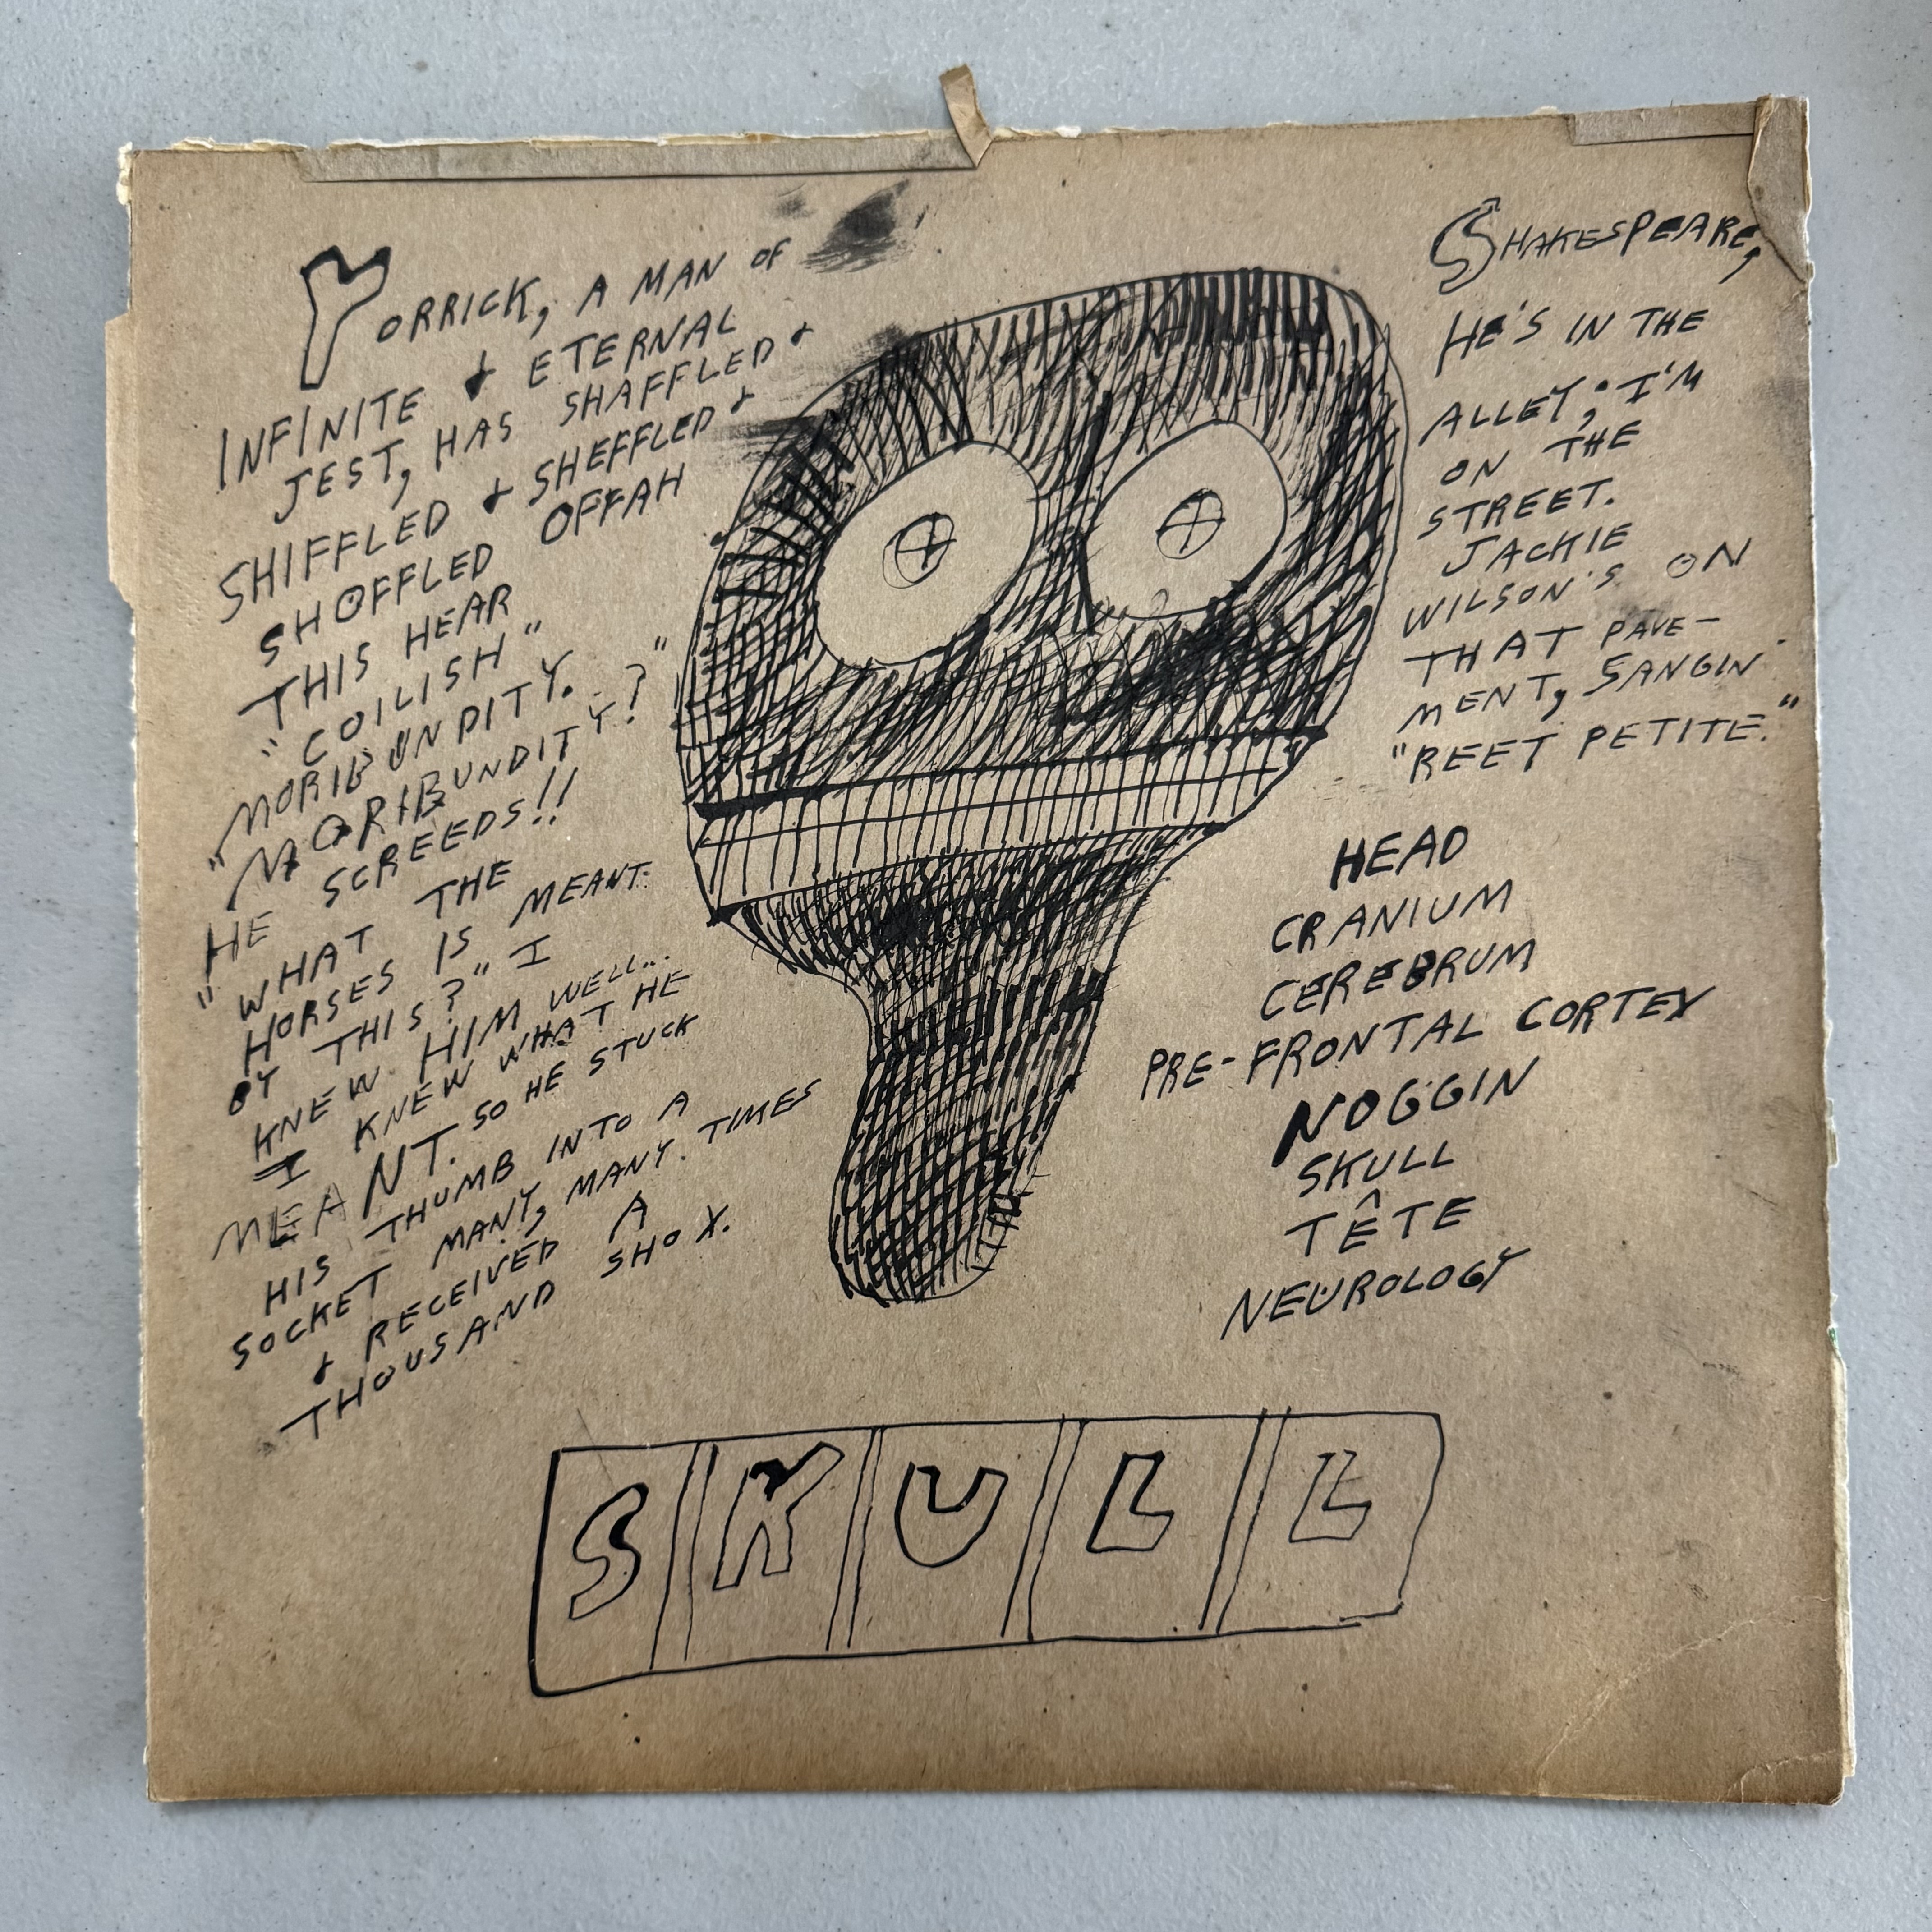 YORRICK, A MAN OF
INFINITE & ETERNAL
JEST, HAS SHAFFLED &
SHIFFLED & SHEFFLED &
SHOFFLED OFFAH
THIS HEAR
"COILISH"
MORIBUNDITY.
"MORIBUNDITY?"
HE SCREEDS!!
"WHAT THE
HORSES IS MEANT
BY THIS?" I
KNEW HIM WELL...
I KNEW WHAT HE
MEANT. SO HE STUCK
HIS THUMB INTO A
SOCKET MANY, MANY. TIMES
& RECEIVED A
THOUSAND SHOX.
SHAKESPEARE,
HE'S IN THE
ALLEY; I'M
ON THE
STREET.
JACKIE
WILSON'S ON
THAT PAVE-
MENT, SANGIN'
"REET PETITE."
HEAD
CRANIUM
CEREBRUM
PRE-FRONTAL CORTEX
NOGGIN
SKULL
TÊTE
NEUROLOGY
SKULL